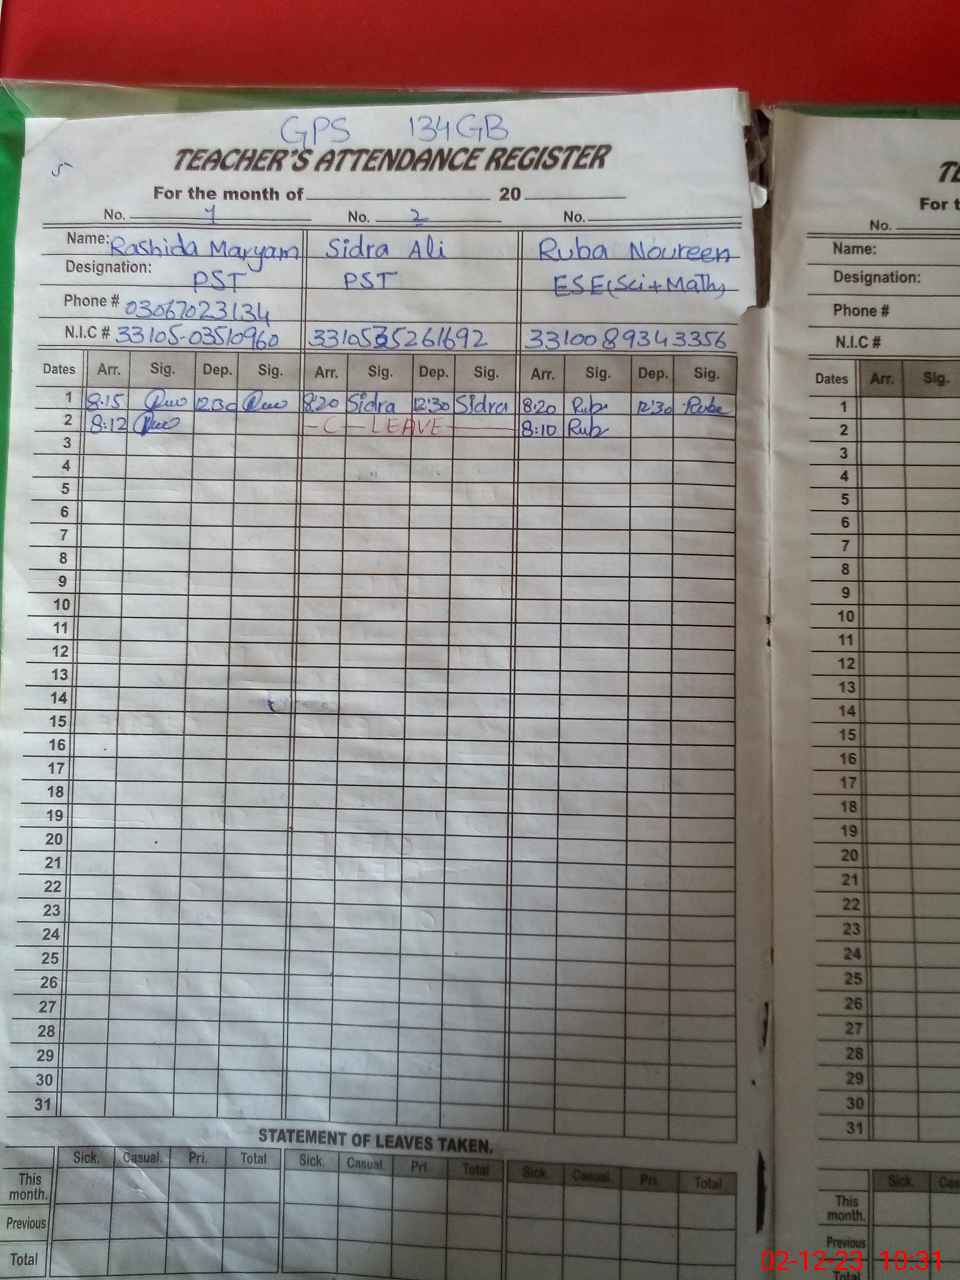 GPS 134GB
TEACHER'S ATTENDANCE REGISTER
For the month of 20
No. 1 No. 2 No.
Name: Rashida Maryam Sidra Ali Ruba Noureen
Designation: PST PST ESE(Sci+Math)
Phone # 03067023134
N.I.C # 33105-03510960 3310535261692 3310089343356
Dates Arr. Sig. Dep. Sig. Arr. Sig. Dep. Sig. Arr. Sig. Dep. Sig.
1 8:15 12:30 8:20 Sidra 12:30 Sidra 8:20 Rub 12:30 Ruba
2 8:12 C LEAVE 8:10 Rub
3
4
5
6
7
8
9
10
11
12
13
14
15
16
17
18
19
20
21
22
23
24
25
26
27
28
29
30
31
STATEMENT OF LEAVES TAKEN.
Sick. Casual. Pri. Total Sick. Casual. Pri. Total Sick. Casual. Pri. Total
This month.
Previous
Total
TE
For t
No.
Name:
Designation:
Phone #
N.I.C #
Dates Arr. Sig.
1
2
3
4
5
6
7
8
9
10
11
12
13
14
15
16
17
18
19
20
21
22
23
24
25
26
27
28
29
30
31
Sick. Cas
This month.
Previous
Total
02-12-23 10:31